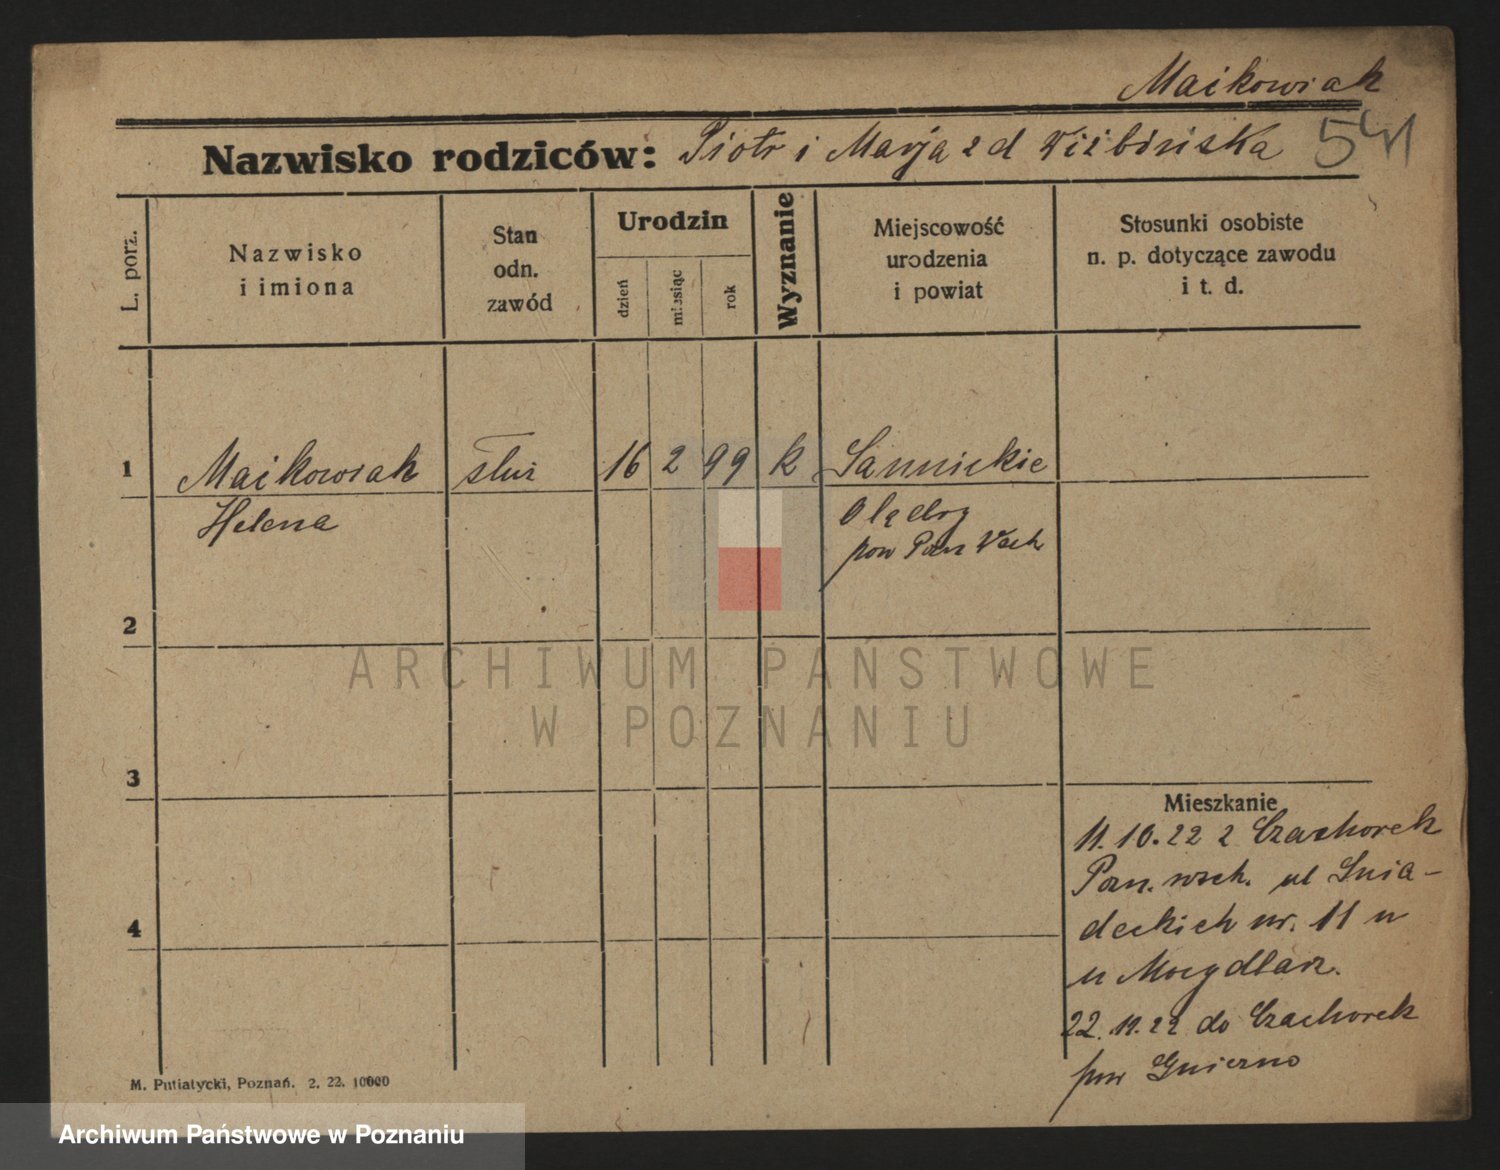 Maikowiak
Nazwisko rodziców: Piotr i Marja z d Wiżbińska
L. porz.
Nazwisko
i imiona
Stan
odn.
zawód
Urodzin
dzień
miesiąc
rok
Wyznanie
Miejscowość
urodzenia
i powiat
Stosunki osobiste
n. p. dotyczące zawodu
i t. d.
1 Maikowiak służ 16 2 99 k Sannickie
Helena Olędry
pow Pozn Wsch
2
3
Mieszkanie
11.10.22 z Czachorek
Pozn. wsch. ul Śnia-
4
deckich nr. 11 u
22.11.22 do Czachorek
pow Gniezno
M. Putiatycki, Poznań. 2. 22. 10000
ARCHIWUM PAŃSTWOWE
W POZNANIU
Archiwum Państwowe w Poznaniu